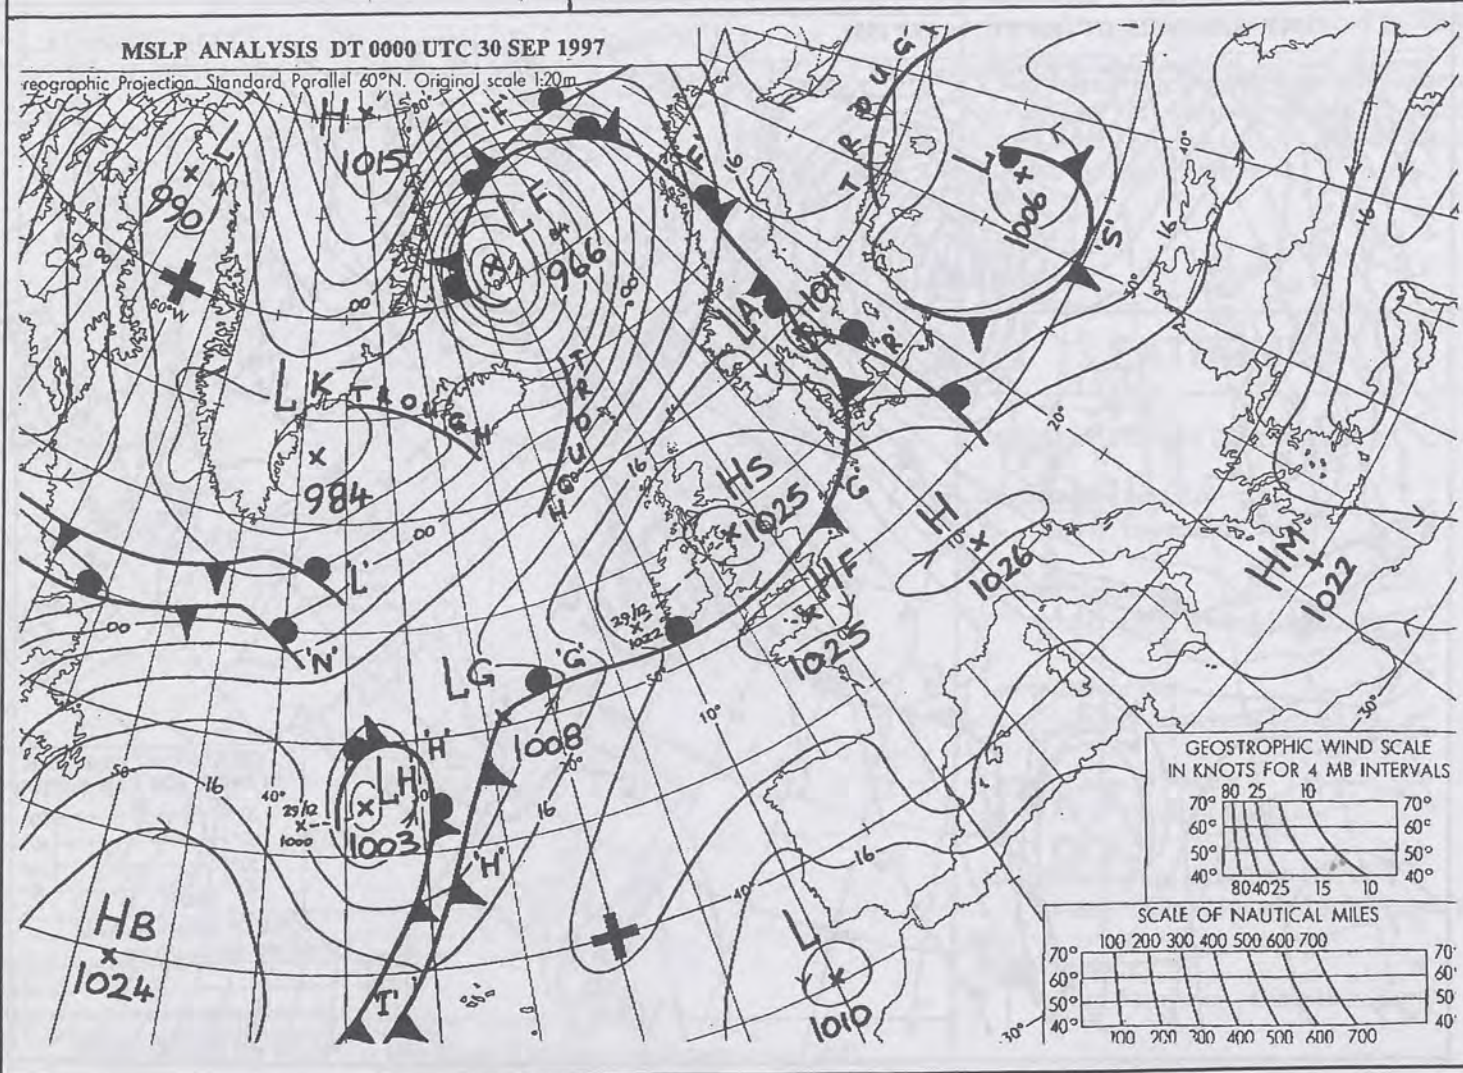 MSLP ANALYSIS DT 0000 UTC 30 SEP 1997
reographic Projection, Standard Parallel 60°N. Original scale 1:20m
H
1015
L
990
60°W
80°
'F'
L F
966
00
'F'
TROUGH
16
L
1006
'S'
40°
16
30°
LA
1011
'R'
20°
16
L K
984
TROUGH
TROUGH
00
16
HS
1025
G
H
1026
HM
1022
HF
1025
'L'
'N'
00
29/12
1022
LG
1008
'G'
50°
10°
20°
50°
16
40°
'H'
LH
1003
29/12
1000
'H'
16
16
40°
HB
1024
'I'
L
1010
30°
30°
GEOSTROPHIC WIND SCALE
IN KNOTS FOR 4 MB INTERVALS
80 25 10
70° 70°
60° 60°
50° 50°
40° 40°
80 40 25 15 10
SCALE OF NAUTICAL MILES
100 200 300 400 500 600 700
70° 70°
60° 60°
50° 50
40° 40°
100 200 300 400 500 600 700